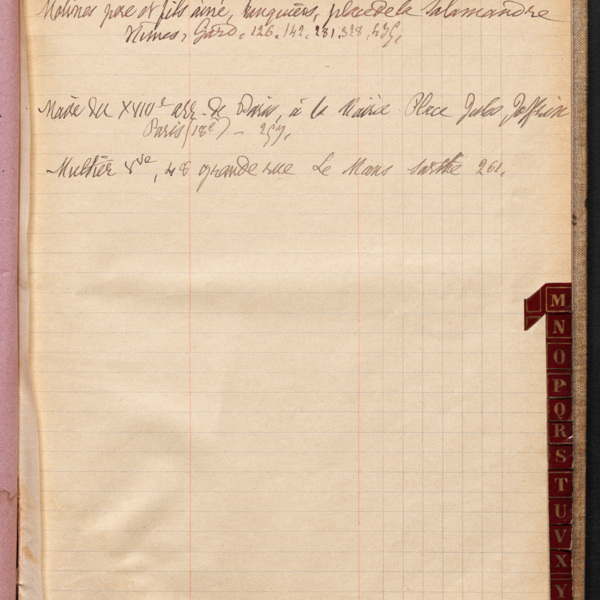 Molines père et fils ainé, banquiers, place de la Salamandre
Nîmes, Gard, 126, 142, 281, 328,
Maire du XVIIIe arr. de Paris, à la Mairie Place Jules Joffrin
Paris (18e) - 257.
Multier Vve, 48 grande rue Le Mans Sarthe 261.
M
N
O
P
Q
R
S
T
U
V
X
Y